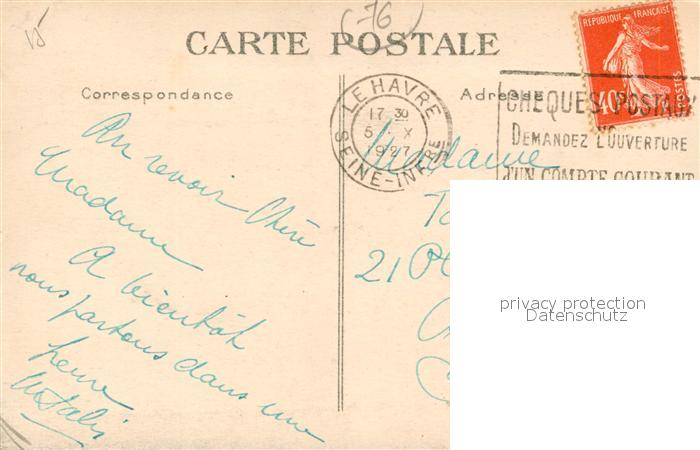 (-76
CARTE POSTALE
Correspondance
Adresse
REPUBLIQUE FRANÇAISE
40
POSTES
LE HAVRE
17 30
5 X
1927
SEINE-INFRE
CHEQUES POSTAUX
DEMANDEZ L'OUVERTURE
D'UN COMPTE COURANT
Au revoir Chère
Madame
A bientôt
nous partons dans une
heure
Madame
21 Pl
privacy protection
Datenschutz